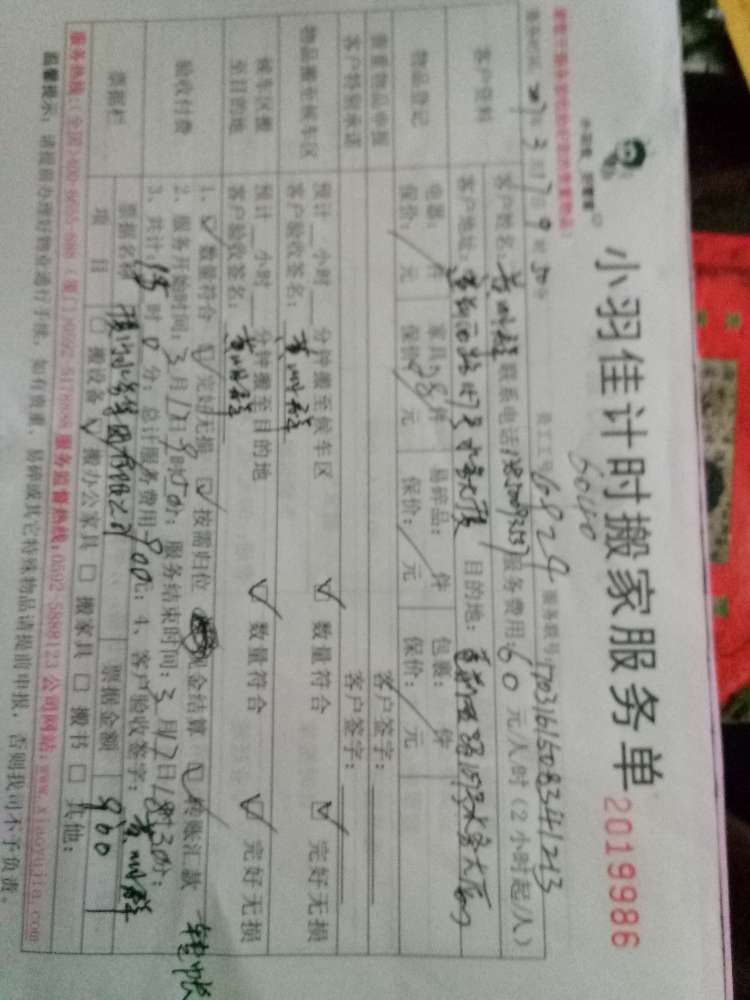 小羽佳计时搬家服务单
2019986
员工工号 6824 服务联号 1703161508341213
6040
客户资料
客户姓名: 联系电话 服务费用: 60 元/人时 (2小时起/人)
客户地址: 目的地:
物品登记
电器: 件 家具: 28件 易碎品: 件 包裹: 件
保价: 元 保价: 元 保价: 元 保价: 元
贵重物品申报 客户签字:
客户特别承诺 客户签字:
物品搬至候车区
预计__小时__分钟搬至候车区 数量符合 完好无损
客户验收签名:
候车区搬至目的地
预计__小时__分钟搬至目的地 数量符合 完好无损
客户验收签名:
验收付费
1、 数量符合 完好无损 按需归位 现金结算 转账汇款 转账
2、服务开始时间: 3月17日9时50分; 服务结束时间: 3月17日18时30分;
3、共计15时0分; 总计服务费用900元; 4、客户验收签字:
票据栏
票据名称 票据金额 900
项目 搬设备 搬办公家具 搬家具 搬书 其他:
服务热线: (全国)400-6055-688 (厦门)0592-5178888 服务监督热线: 0592-5888123 公司网站: www.xiaoyujia.com
温馨提示: 请提前办理好物业通行手续, 如有贵重、易碎或其它特殊物品请提前申报, 否则我司不予负责。